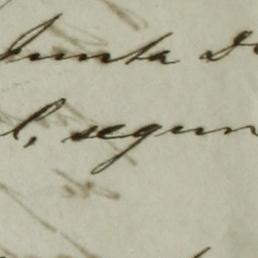 Junta D
l, segun